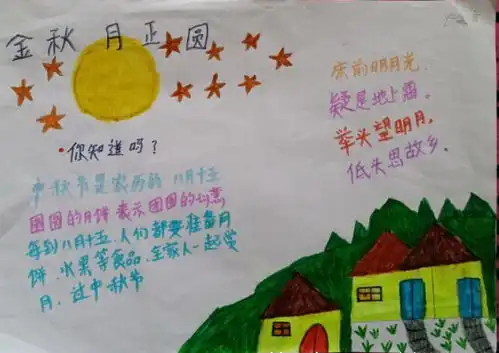 金秋月正圆
你知道吗？
中秋节是农历的八月十五
团圆的月饼表示团圆的
每到八月十五.人们都要准备月
饼.水果等食品.全家人一起赏
月.过中秋节
床前明月光.
疑是地上霜。
举头望明月,
低头思故乡.